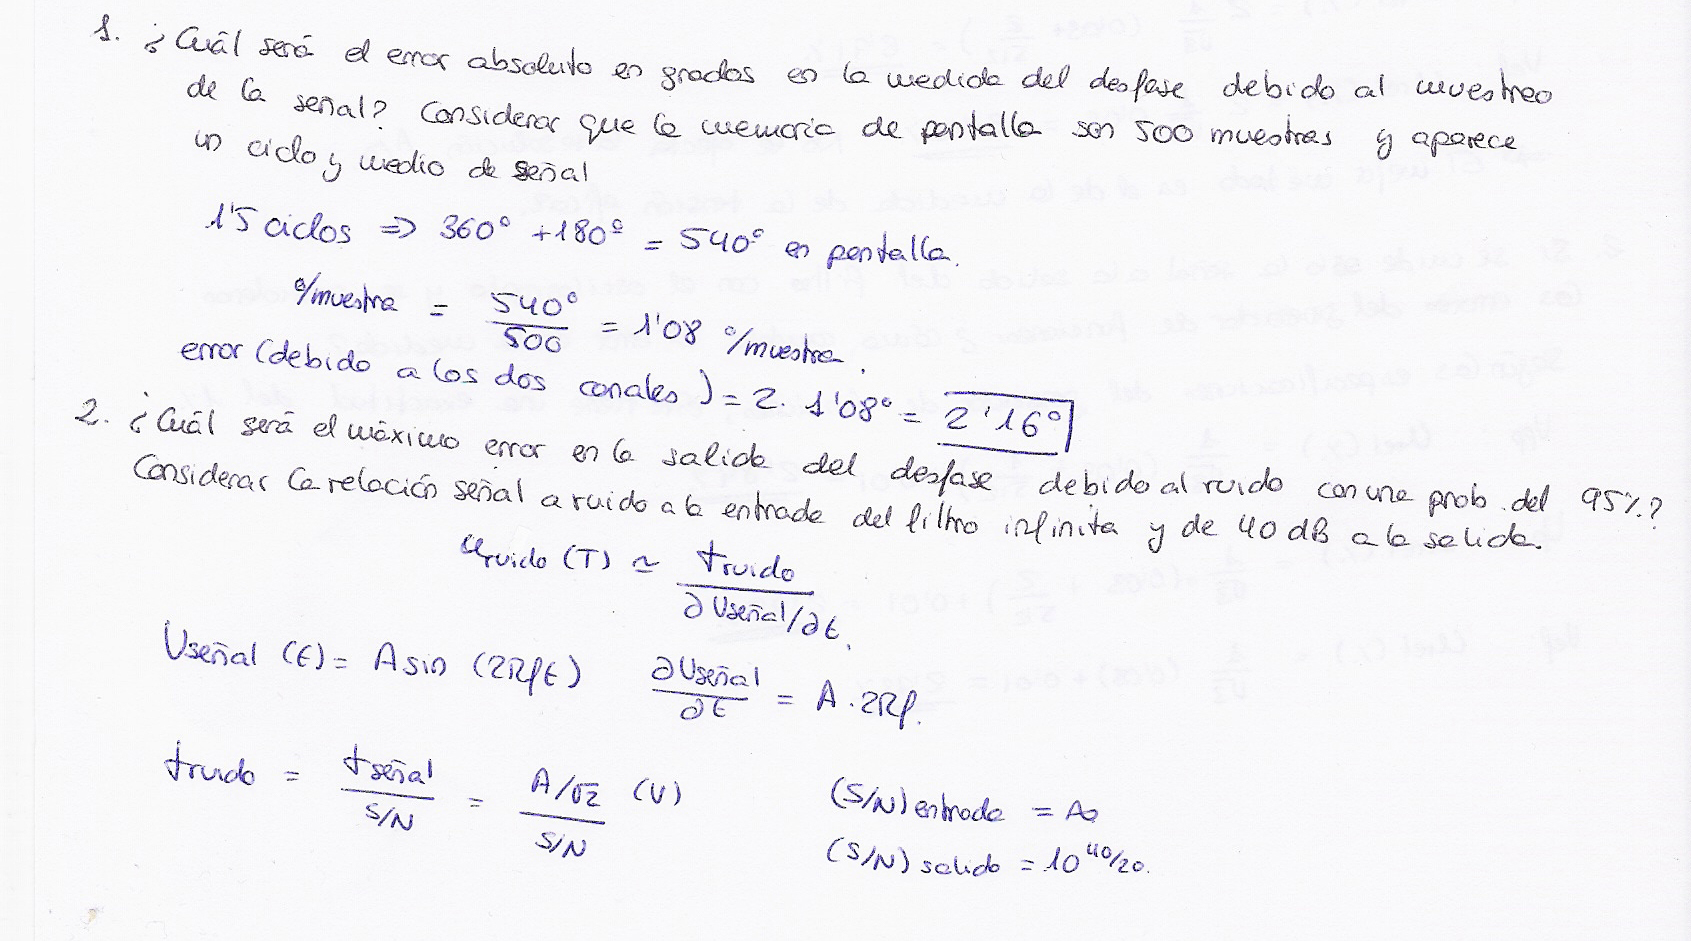 1. ¿Cuál será el error absoluto en grados en la medida del desfase debido al muestreo
de la señal? Considerar que la memoria de pantalla son 500 muestras y aparece
un ciclo y medio de señal
1'5 ciclos => 360° + 180° = 540° en pantalla.
°/muestra = 540°/500 = 1'08 °/muestra.
error (debido a los dos canales) = 2. 1'08° = 2'16°
2. ¿Cuál será el máximo error en la salida del desfase debido al ruido con una prob. del 95%?
Considerar la relación señal a ruido a la entrada del filtro infinita y de 40 dB a la salida.
u ruido (T) ≃ t ruido / ∂Useñal/∂t.
Useñal (t) = A sin (2πft) ∂Useñal/∂t = A · 2πf.
t ruido = t señal / S/N = A/√2 / S/N (V) (S/N) entrada = ∞
(S/N) salida = 10^40/20.